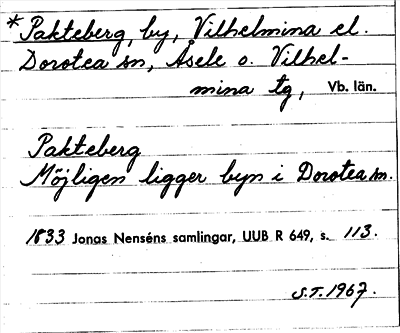 *Pakteberg, by, Vilhelmina el.
Dorotea sn, Åsele o. Vilhel-
mina tg, Vb. län.
Pakteberg
Möjligen ligger byn i Dorotea sn.
1833 Jonas Nenséns samlingar, UUB R 649, s. 113.
S.T. 1967.